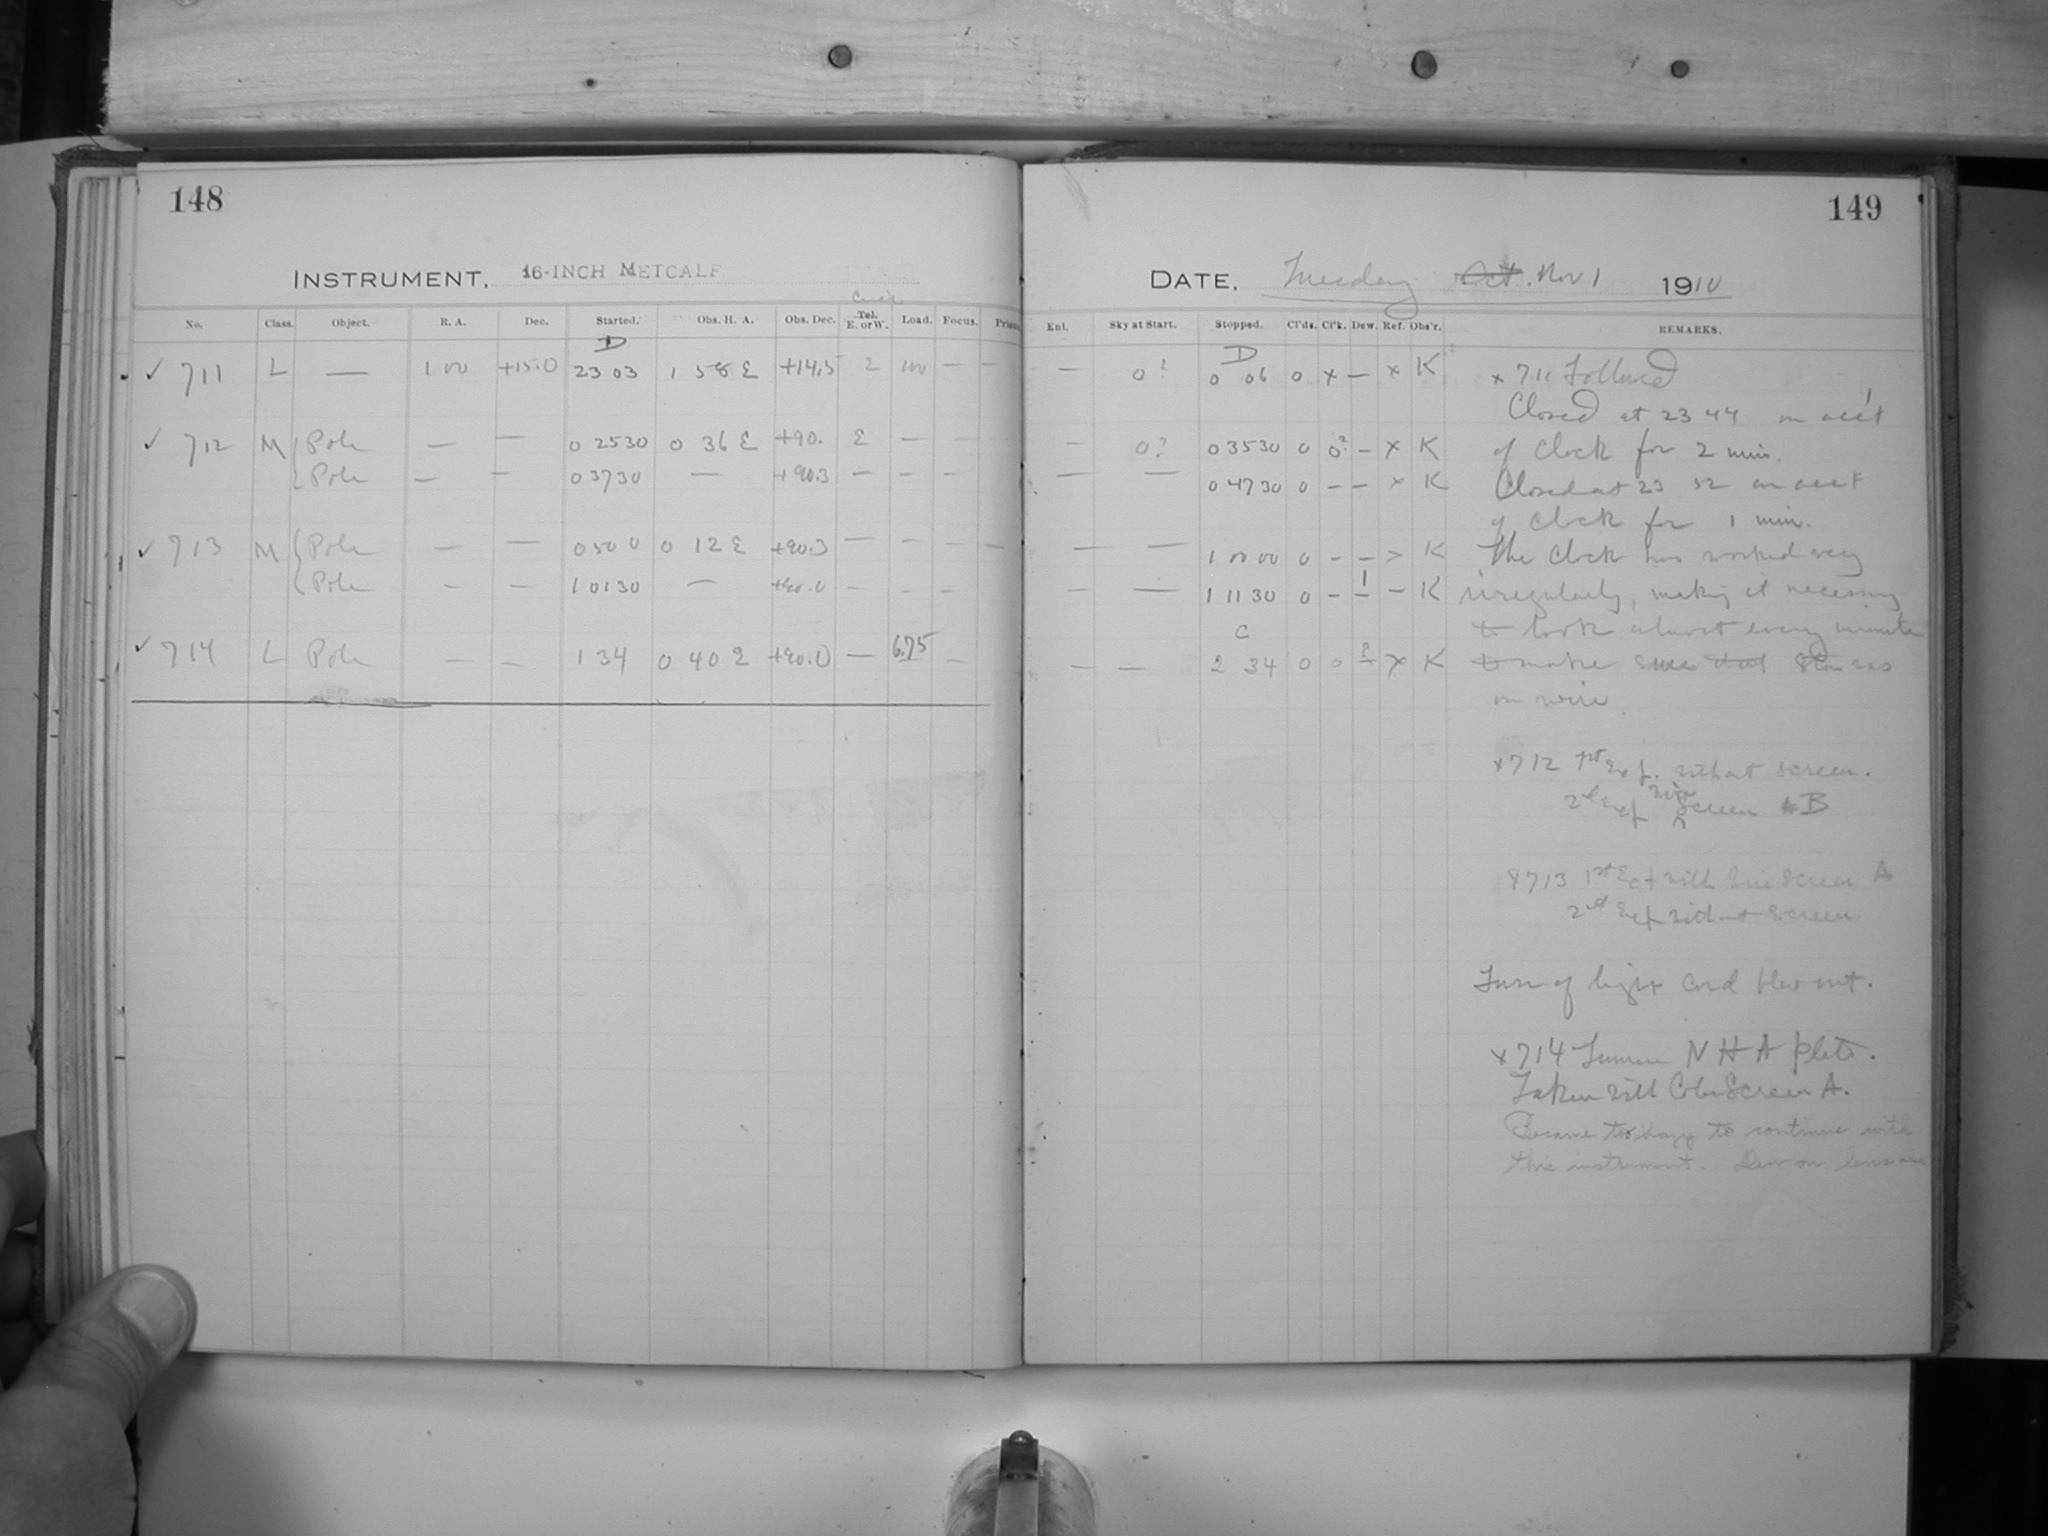 148
INSTRUMENT. 16-INCH METCALF
No. Class. Object. R. A. Dec. Started. Obs. H. A. Obs. Dec. Tel. E. or W. Load. Focus.
D
✓ 711 L — 1 00 +15.0 23 03 1 58 E +14.5 E — —
✓ 712 M Pole — — 0 25 30 0 36 E +90. E — —
Pole — — 0 37 30 — +90.3 — — —
✓ 713 M Pole — — 0 50 0 0 12 E +90.3 — — — —
Pole — — 1 01 30 — +90.0 — — —
✓ 714 L Pole — — 1 34 0 40 E +90.0 — 6.75 —
149
DATE. Tuesday Oct. Nov 1 1910
Ent. Sky at Start. Stopped. Cl'ds. Cl'k. Dew. Ref. Obs'r. REMARKS.
D
— 0? 0 06 0 x — x K
— 0? 0 35 30 0 0? — x K
— — 0 47 30 0 — — x K
— — 1 00 00 0 — — K
— — 1 11 30 0 — — — K
C
— — 2 34 0 0 ? x K
x 711 Followed
Closed at 23 44 on acc't
of clock for 2 min.
Closed at 23 52 on acc't
of clock for 1 min.
The clock has worked very
irregularly, making it necessary
to look almost every minute
to make sure that star was
on wire.
x 712 1st Exp. without screen.
2d Exp wire screen B
x 713 1st Ex + with wire screen A
2nd Exp without screen
Fuse of light cord blew out.
x 714 Lumiere N H A plate.
Taken with Color Screen A.
Became too hazy to continue with
this instrument. Dew on lens also